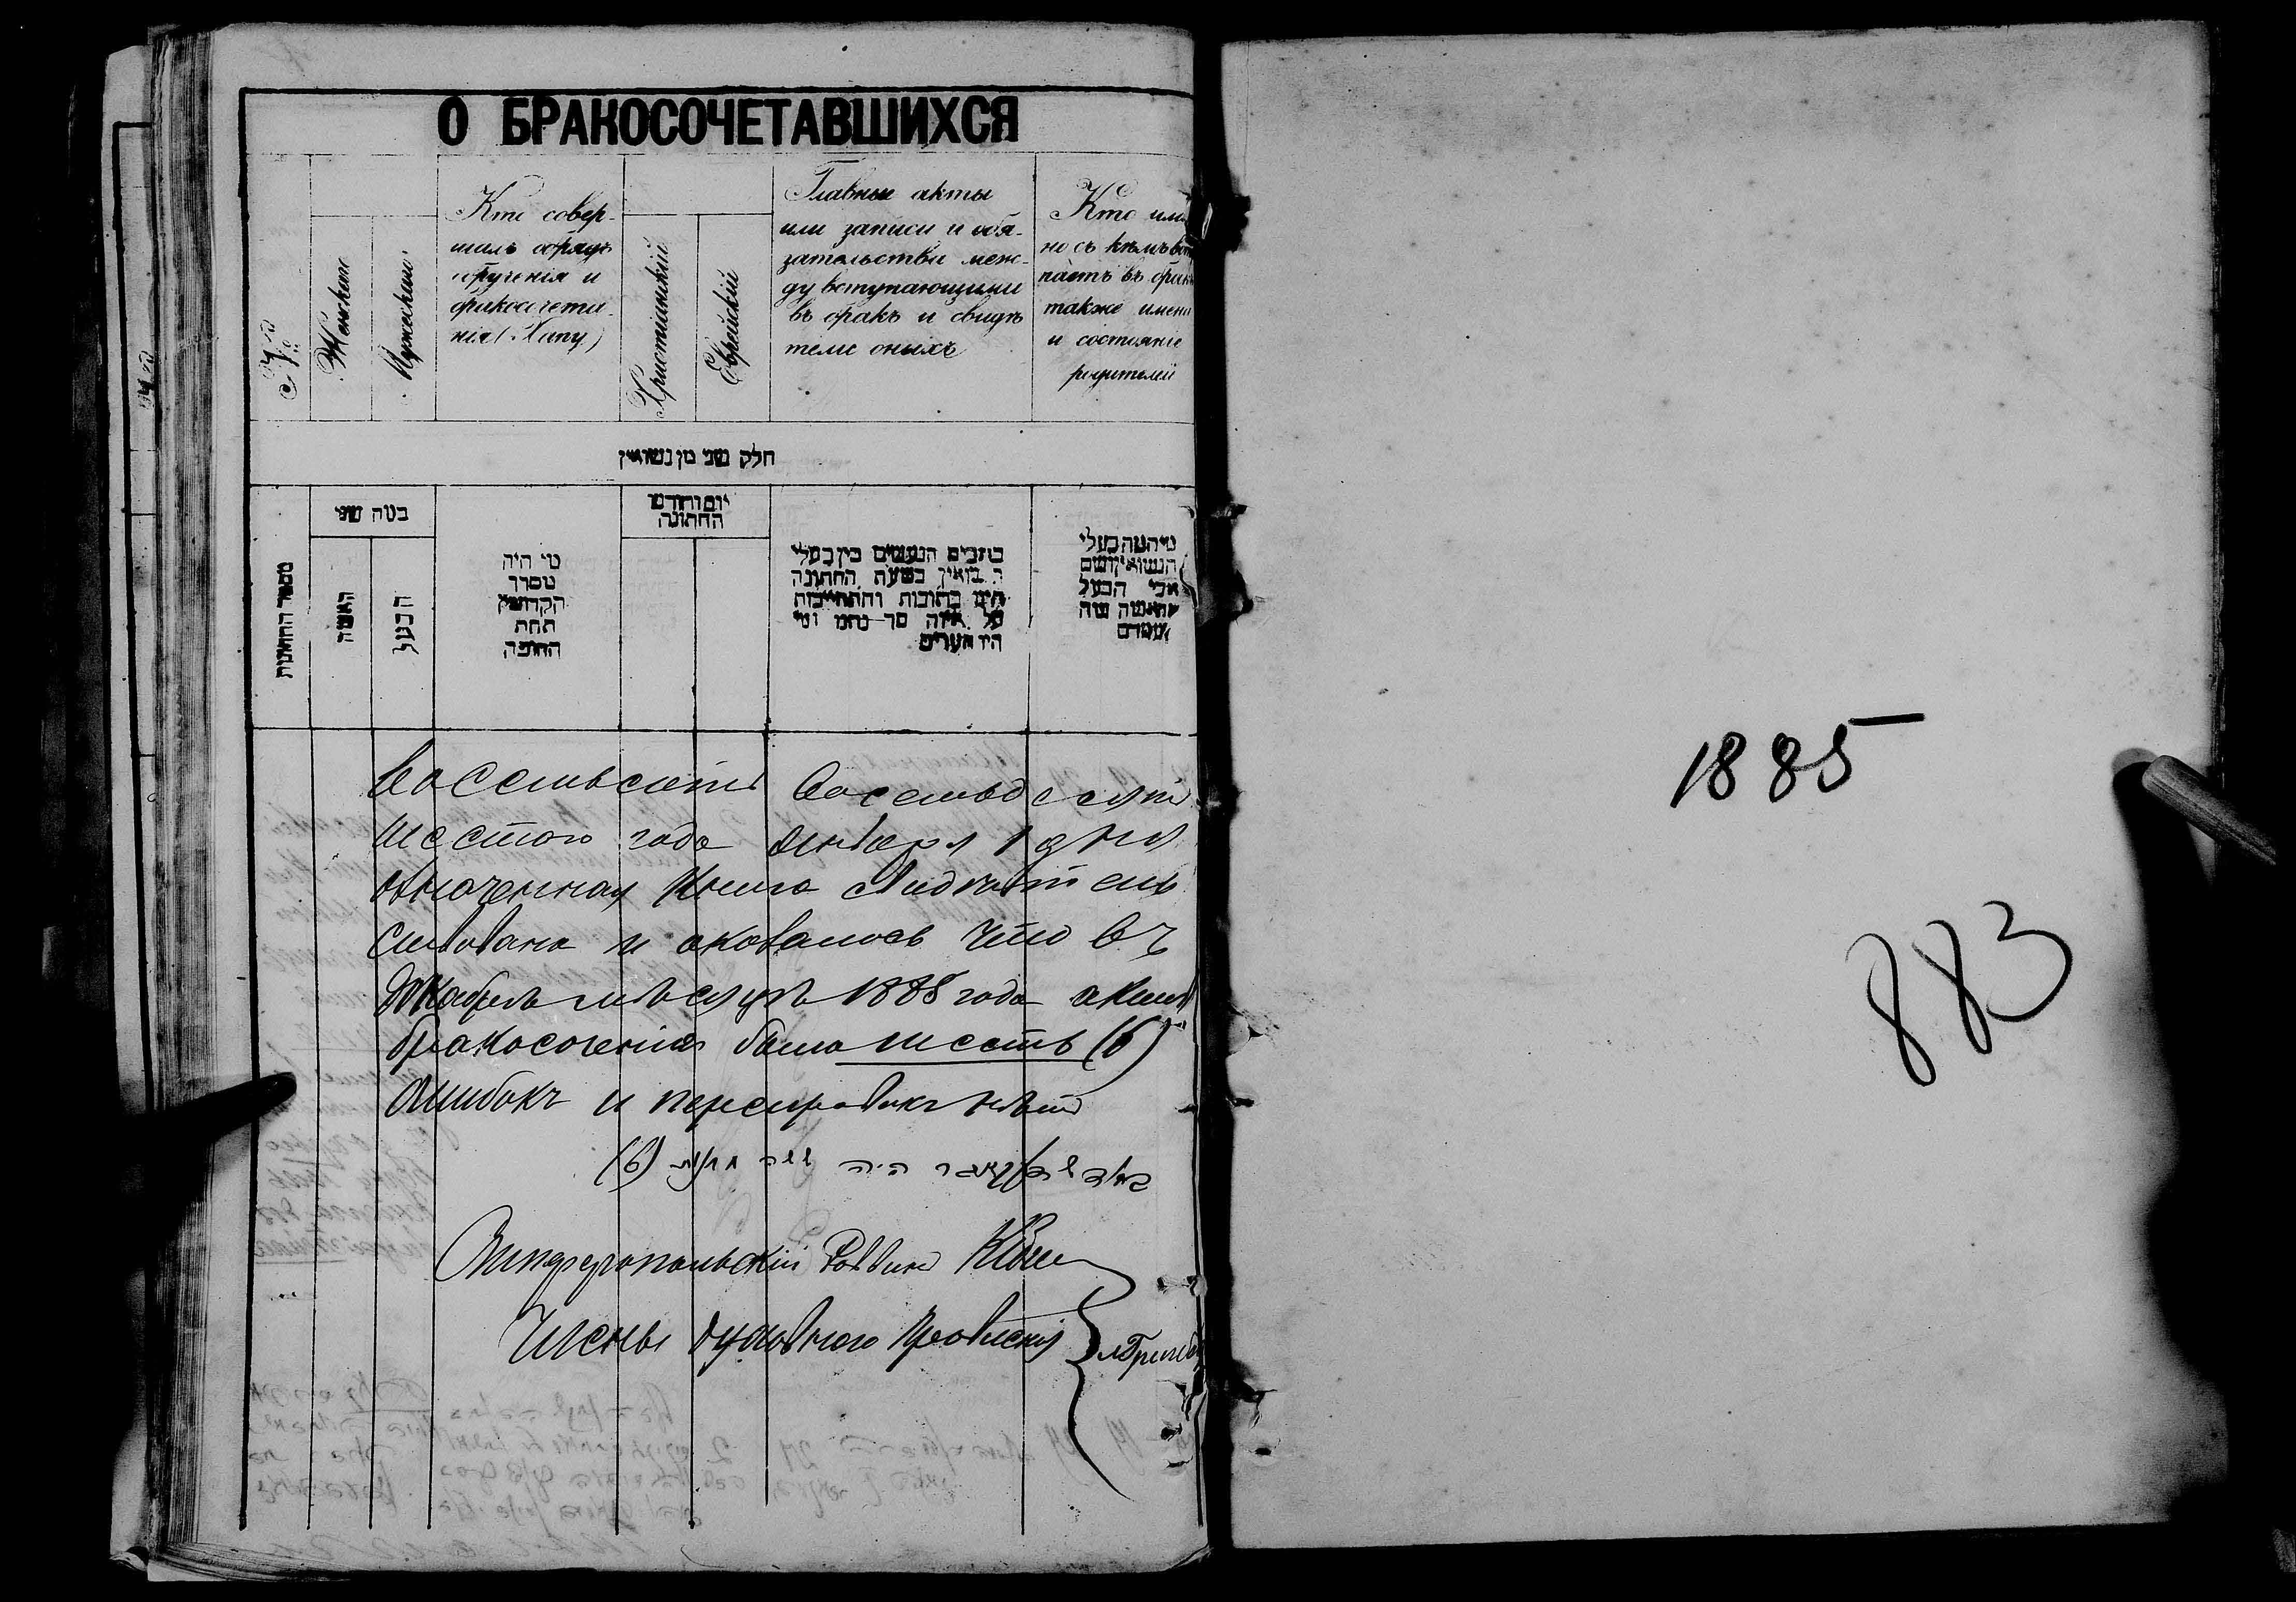 О БРАКОСОЧЕТАВШИХСЯ
№
Женское
Мужеское
Кто совер-
шилъ обрядъ
обрученія и
бракосочета-
нія (Хупу)
Христіанскій
Еврейскій
Главные акты
или записи и обя-
зательства меж-
ду вступающими
въ бракъ и свидѣ
тели оныхъ
Кто име
но съ кѣмъ
паетъ въ бракъ
также имена
и состояніе
родителей
חלק שני מן נשואין
מספר החתונות
כמה שני
האשה
הבעל
מי היה
מסדר
הקדושין
תחת
החופה
יום וחודש
החתונה
כתבים הנעשים בין בעלי
בשעת החתונה
כתובות והתחייבות
על איזה סך
היו העדים
מי המה בעלי
הנשואין ושם
אבי הבעל
והאשה
восемьсотъ восемьдесятъ
шестого года января 1 дня
означенная книга свидѣтель
ствована и оказалось что въ
Декабрѣ мѣсяцѣ 1885 года актовъ
бракосоченія было шесть (6)
ошибокъ и переправокъ нѣтъ
היה ששה חתונות (6)
Симферопольскій Раввинъ
Члены духовного Правленія
1885
883